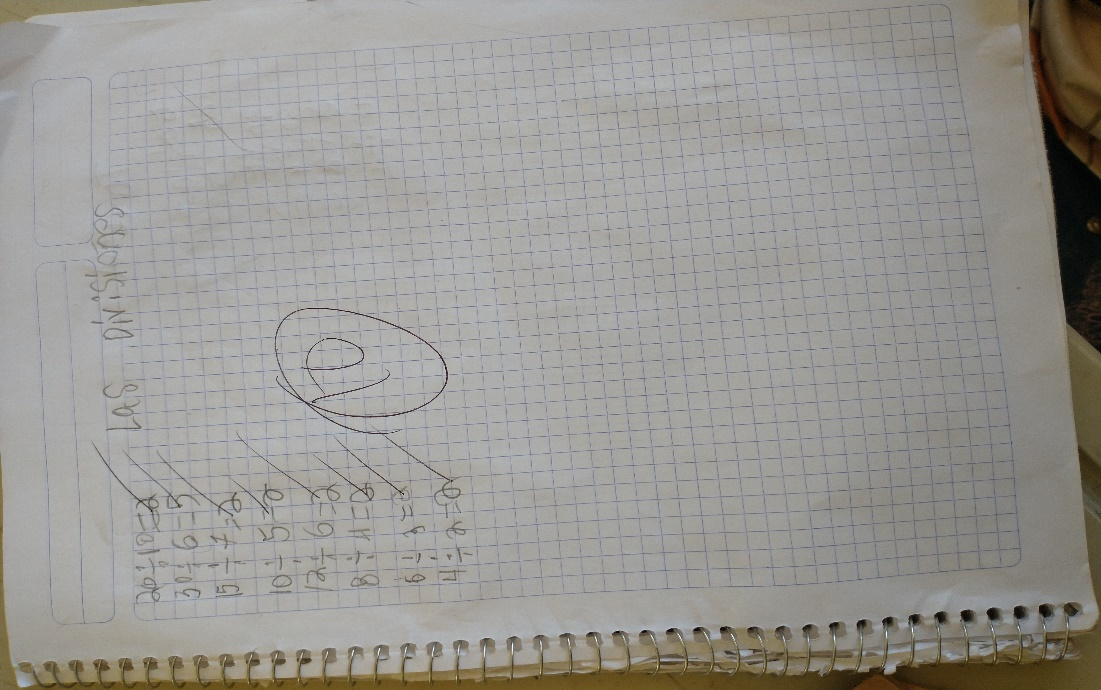 las divisiones
20÷10=2
30÷6=5
15÷7=2
10÷5=2
12÷6=2
8÷4=2
6÷3=2
4÷2=2
10